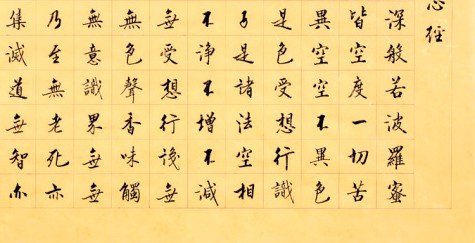 心經
深般若波羅蜜
皆空度一切苦
異空空不異色
是色受想行識
子是諸法空相
不淨不增不減
無受想行識無
無色聲香味觸
無意識界無
乃至無老死亦
集滅道無智亦